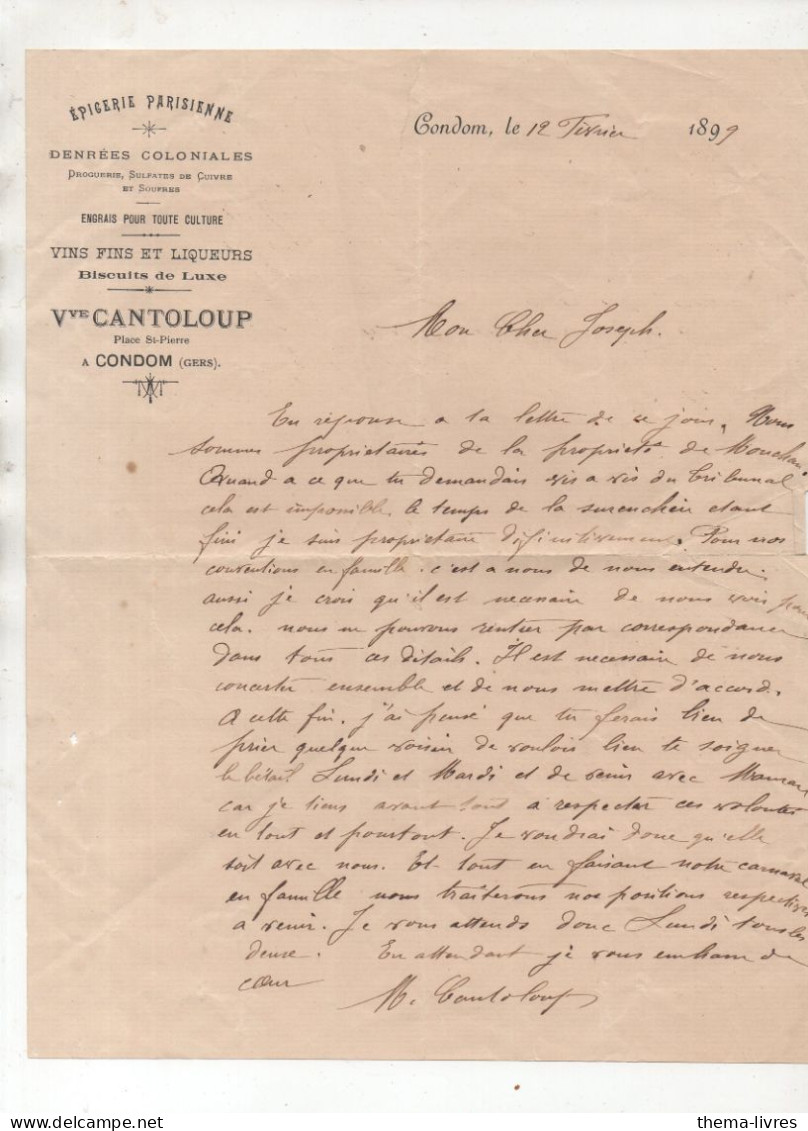 ÉPICERIE PARISIENNE
DENRÉES COLONIALES
DROGUERIE, SULFATES DE CUIVRE
ET SOUFRES
ENGRAIS POUR TOUTE CULTURE
VINS FINS ET LIQUEURS
Biscuits de Luxe
VVE CANTOLOUP
Place St-Pierre
A CONDOM (GERS).
Condom, le 12 Février 1899
Mon Cher Joseph.
En réponse a ta lettre de ce jour, Nous
sommes propriétaires de la propriété de Mouchan.
Quand a ce que tu demandais vis a vis du tribunal
cela est impossible. le temps de la surenchère etant
fini je suis propriétaire définitivement. Pour nos
conventions en famille. c'est a nous de nous entendre.
aussi je crois qu'il est necessaire de nous voir pour
cela. nous ne pouvons rentrer par correspondance
dans tous ces détails. Il est necessaire de nous
concerter ensemble et de nous mettre d'accord.
A cette fin. j'ai pensé que tu ferais bien de
prier quelque voisin de vouloir bien te soigner
le bétail Lundi et Mardi et de venir avec Maman
car je tiens avant tout a respecter ces volontés
en tout et pourtout. Je voudrai donc qu'elle
soit avec nous. Et tout en faisant notre carnaval
en famille nous traiterons nos positions respectives
a venir. Je vous attends donc Lundi tous les
deux. En attendant je vous embrasse de
cœur
M. Cantoloup
thema-livres